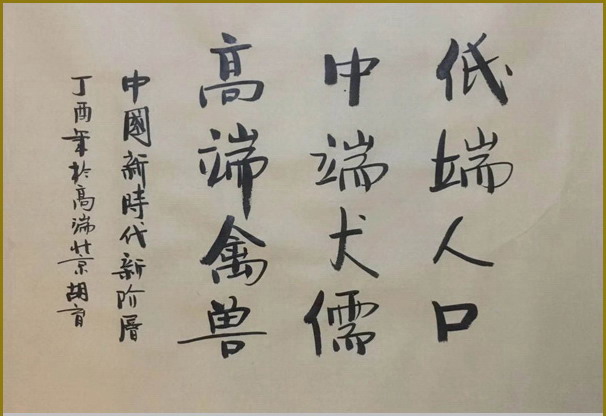 低端人口
中端犬儒
高端禽兽
中國新時代新阶層
丁酉年於高端